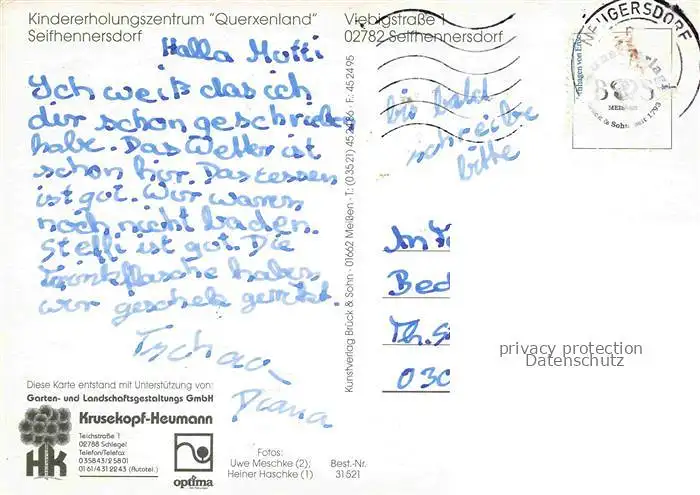 Kindererholungszentrum "Querxenland"
Seifhennersdorf
Viebigstraße 1
02782 Seifhennersdorf
NEUGERSDORF
Halla Mutti
Ich weiß das ich
dir schon geschriebe
habe. Das Wetter ist
schon hir. Das essen
ist gut. Wir waren
noch nicht baden.
Steffi ist gut. Die
Trinkflasche haben
wir
Tschau
Diana
bis bald
schreibe
bitte
An
Bed
Th.
030
Kunstverlag Brück & Sohn · 01662 Meißen · T: (03521) · F: 452495
B&S
MEISSEN
& Sohn seit 1793
privacy protection
Datenschutz
Diese Karte entstand mit Unterstützung von:
Garten- und Landschaftsgestaltungs GmbH
Krusekopf-Heumann
Teichstraße 1
02788 Schlegel
Telefon/Telefax
035843/25801
0161/4312243 (Autotel.)
HK
optima
Fotos:
Uwe Meschke (2);
Heiner Haschke (1)
Best.-Nr.
31521